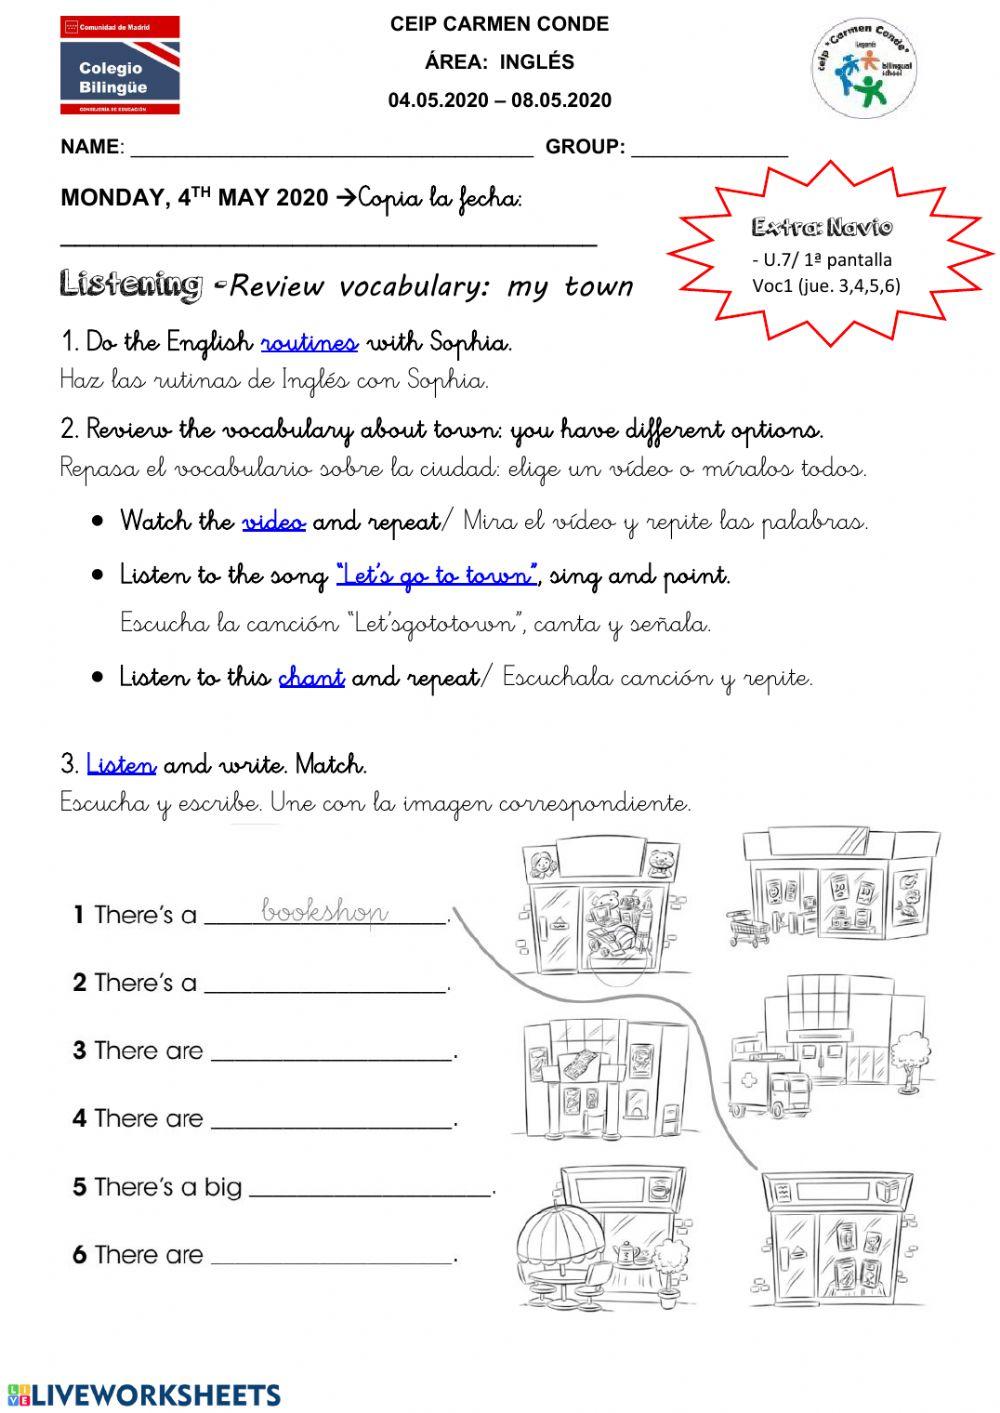 Comunidad de Madrid
Colegio
Bilingüe
CONSEJERÍA DE EDUCACIÓN
CEIP CARMEN CONDE
ÁREA: INGLÉS
04.05.2020 – 08.05.2020
ceip "Carmen Conde"
Leganés
bilingual
school
NAME: ___________________________________ GROUP: ______________
MONDAY, 4TH MAY 2020 →Copia la fecha:
Extra: Navio
- U.7/ 1ª pantalla
Voc1 (jue. 3,4,5,6)
Listening -Review vocabulary: my town
1. Do the English routines with Sophia.
Haz las rutinas de Inglés con Sophia.
2. Review the vocabulary about town: you have different options.
Repasa el vocabulario sobre la ciudad: elige un vídeo o míralos todos.
• Watch the video and repeat/ Mira el vídeo y repite las palabras.
• Listen to the song "Let's go to town", sing and point.
Escucha la canción "Let'sgototown", canta y señala.
• Listen to this chant and repeat/ Escuchala canción y repite.
3. Listen and write. Match.
Escucha y escribe. Une con la imagen correspondiente.
1 There's a bookshop.
2 There's a ____________________.
3 There are ____________________.
4 There are ____________________.
5 There's a big ____________________.
6 There are ____________________.
LIVE LIVEWORKSHEETS